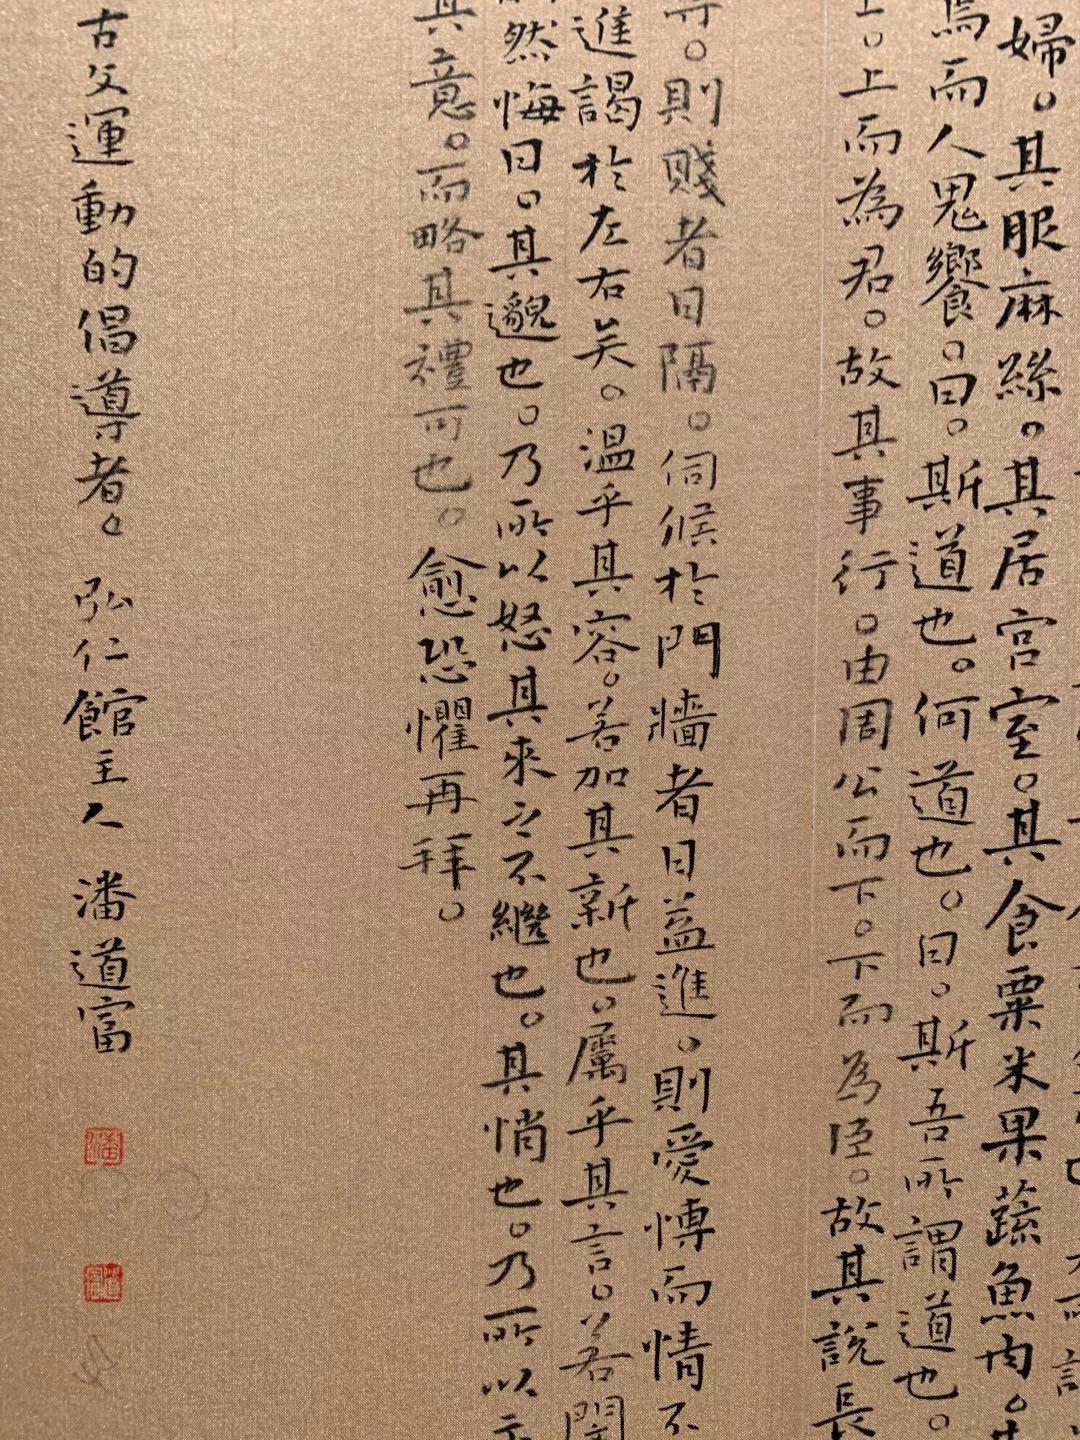 婦。其服麻絲。其居宮室。其食粟米果蔬魚肉。
焉而人鬼饗。曰。斯道也。何道也。曰。斯吾所謂道也。
上。上而為君。故其事行。由周公而下。下而為臣。故其說長
則賤者日隔。伺候於門牆者日益進。則愛慱而情不
進謁於左右矣。温乎其容。若加其新也。屬乎其言。若閔
然悔曰。其邈也。乃所以怒其來之不繼也。其悄也。乃所以示
其意。而略其禮可也。愈恐懼再拜。
古文運動的倡導者。弘仁館主人 潘道富
潘